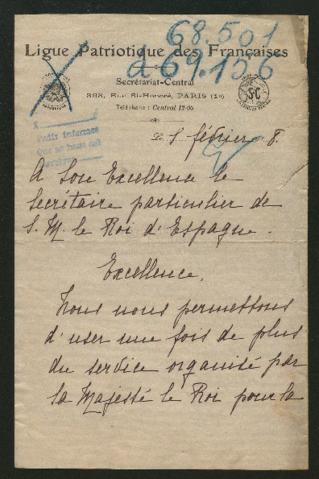 68.501
Ligue Patriotique des Françaises
269.156
Secrétariat-Central
368, Rue St-Honoré, PARIS (1er)
Téléphone : Central 12-06
février 8.
A Son Excellence le
Secrétaire particulier de
S. M. le Roi d'Espagne.
Excellence,
Nous nous permettons
d'user une fois de plus
du service organisé par
Sa Majesté le Roi pour la